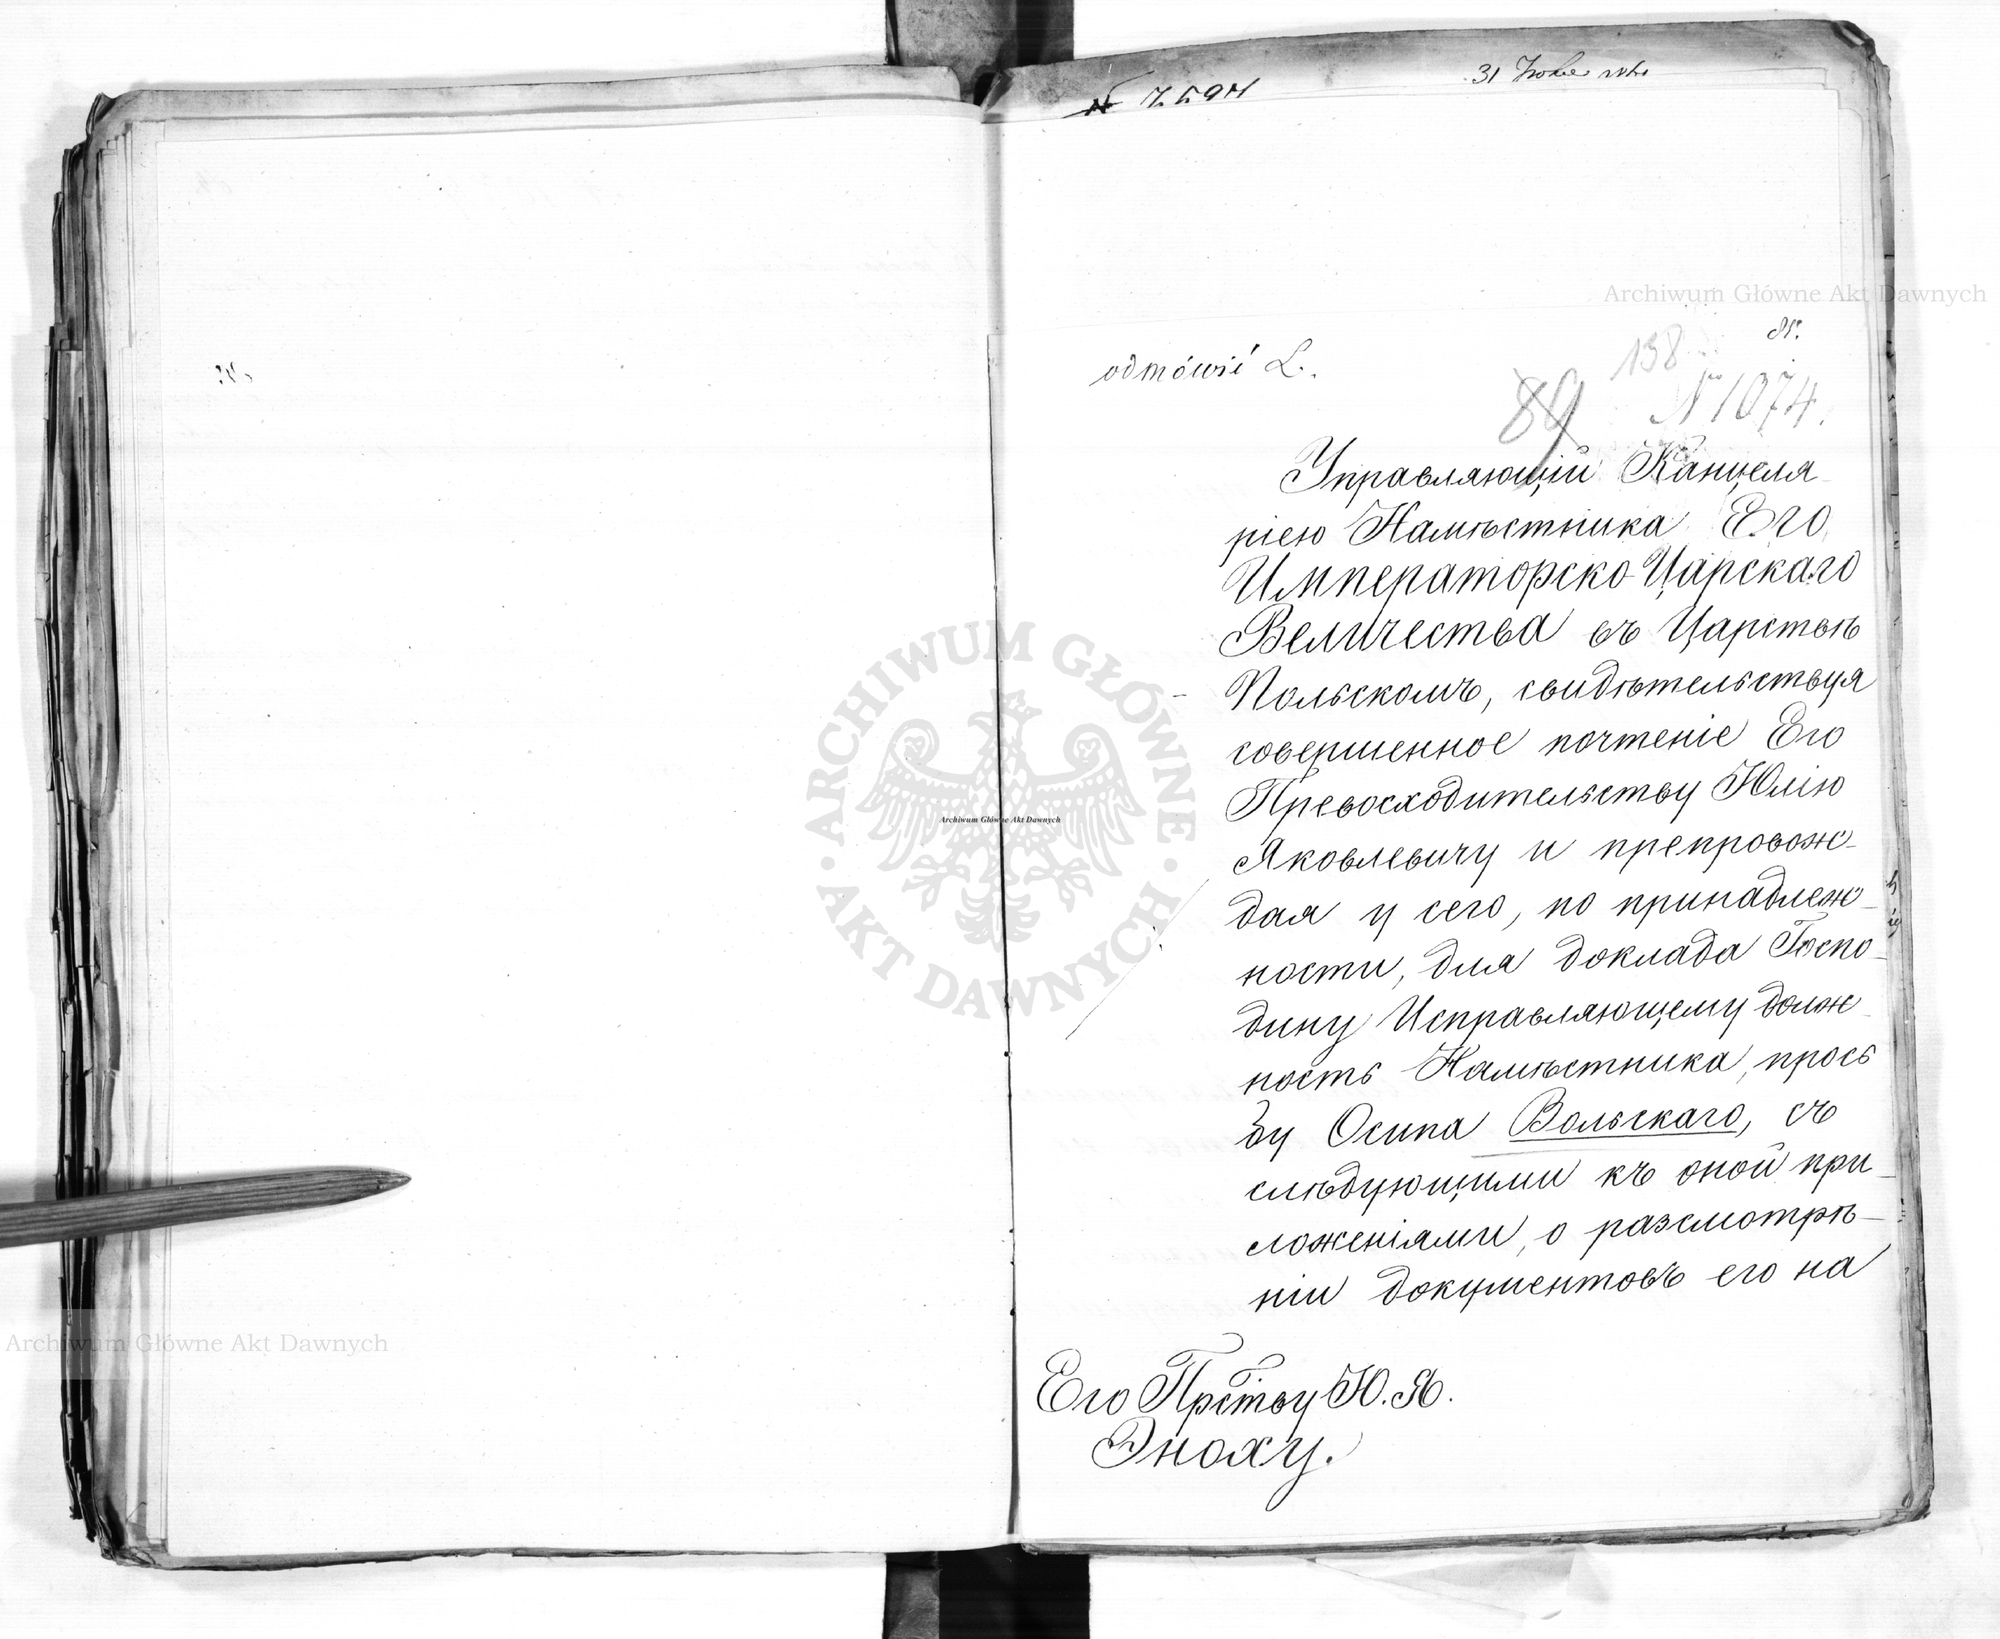 № 7597
31
odmówić L.
138
85.
89
№ 1074.
Управляющій Канцеля
ріею Намѣстника Его
Императорско-Царскаго
Величества въ Царствѣ
Польскомъ, свидѣтельствуя
совершенное почтеніе Его
Превосходительству Юлію
Яковлевичу и препровож-
дая у сего, по принадлеж-
ности, для доклада Госпо-
дину Исправляющему долж
ность Намѣстника, прось
бу Осипа Вольскаго, съ
слѣдующими къ оной при-
ложеніями, о разсмотрѣ-
ніи документовъ его на
Его Прству Ю. Я.
Эноху.
Archiwum Główne Akt Dawnych
ARCHIWUM GŁÓWNE · AKT DAWNYCH ·
Archiwum Główne Akt Dawnych
Archiwum Główne Akt Dawnych